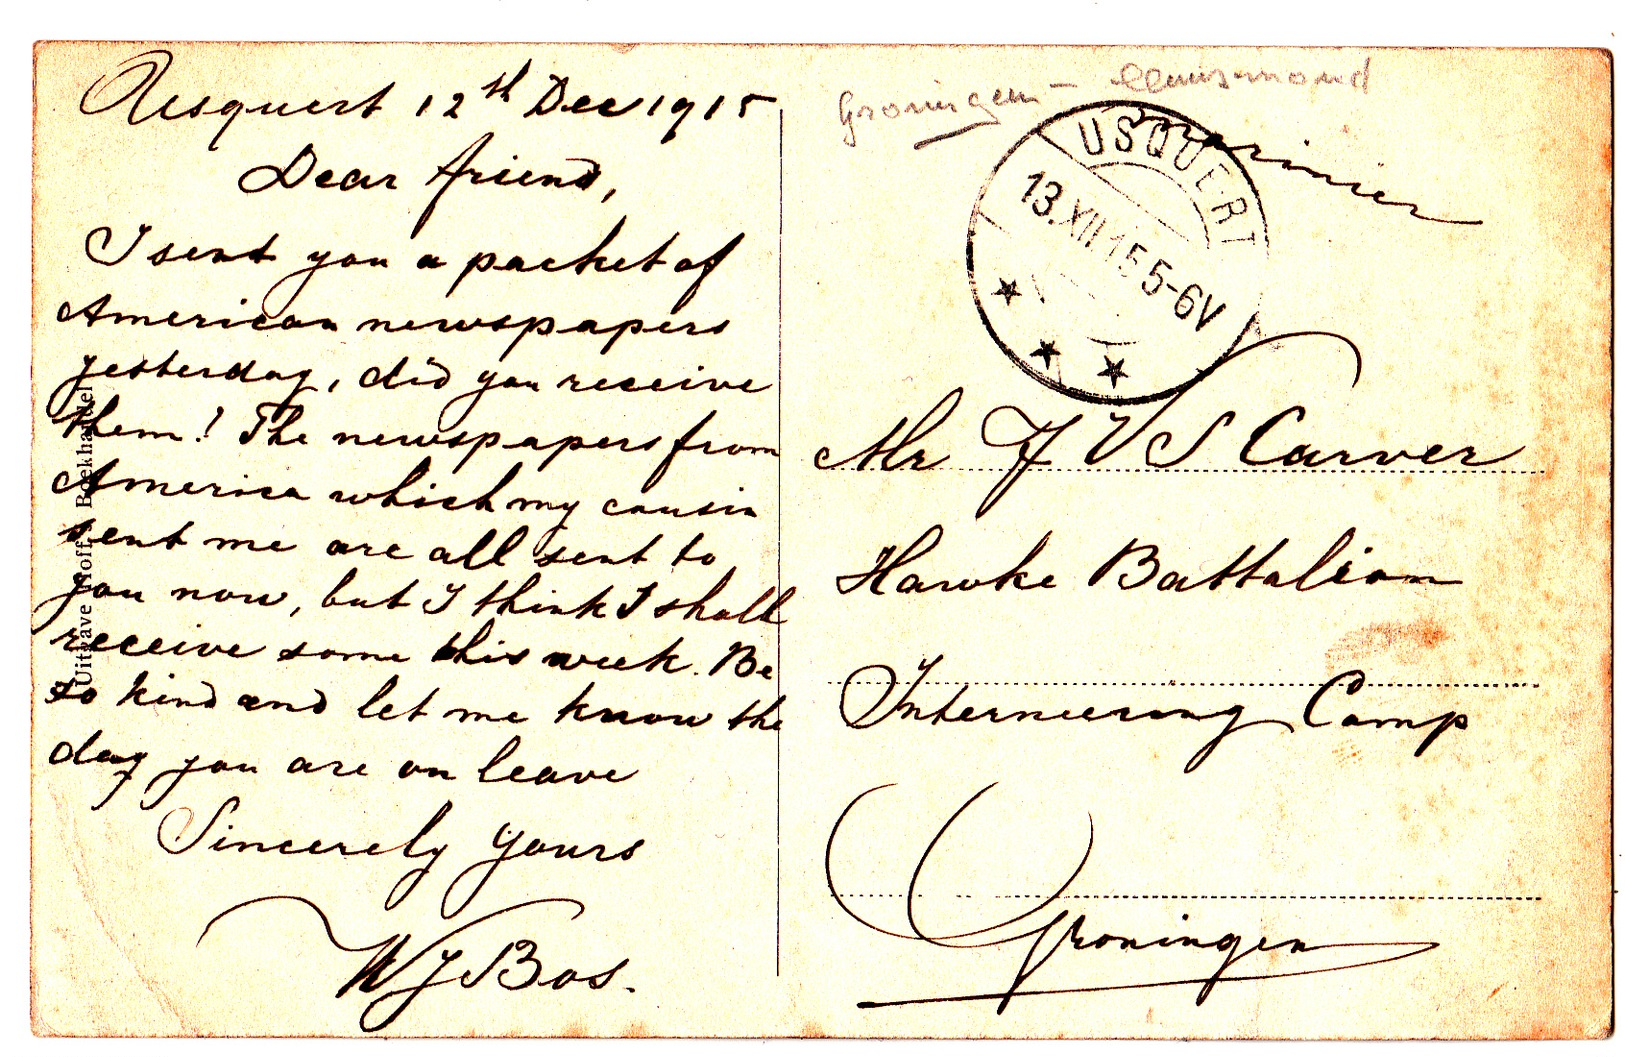 Usquert 12th Dec 1915
Dear friend,
I sent you a packet of
American newspapers
yesterday, did you receive
them? The newspapers from
America which my cousin
sent me are all sent to
you now, but I think I shall
receive some this week. Be
so kind and let me know the
day you are on leave
Sincerely yours
W J Bos.
Uitgave Hoff's Boekhandel
Groningen -
USQUERT
13.XII.15 5-6V
Mr F V S Carver
Hawke Battalion
Interneering Camp
Groningen